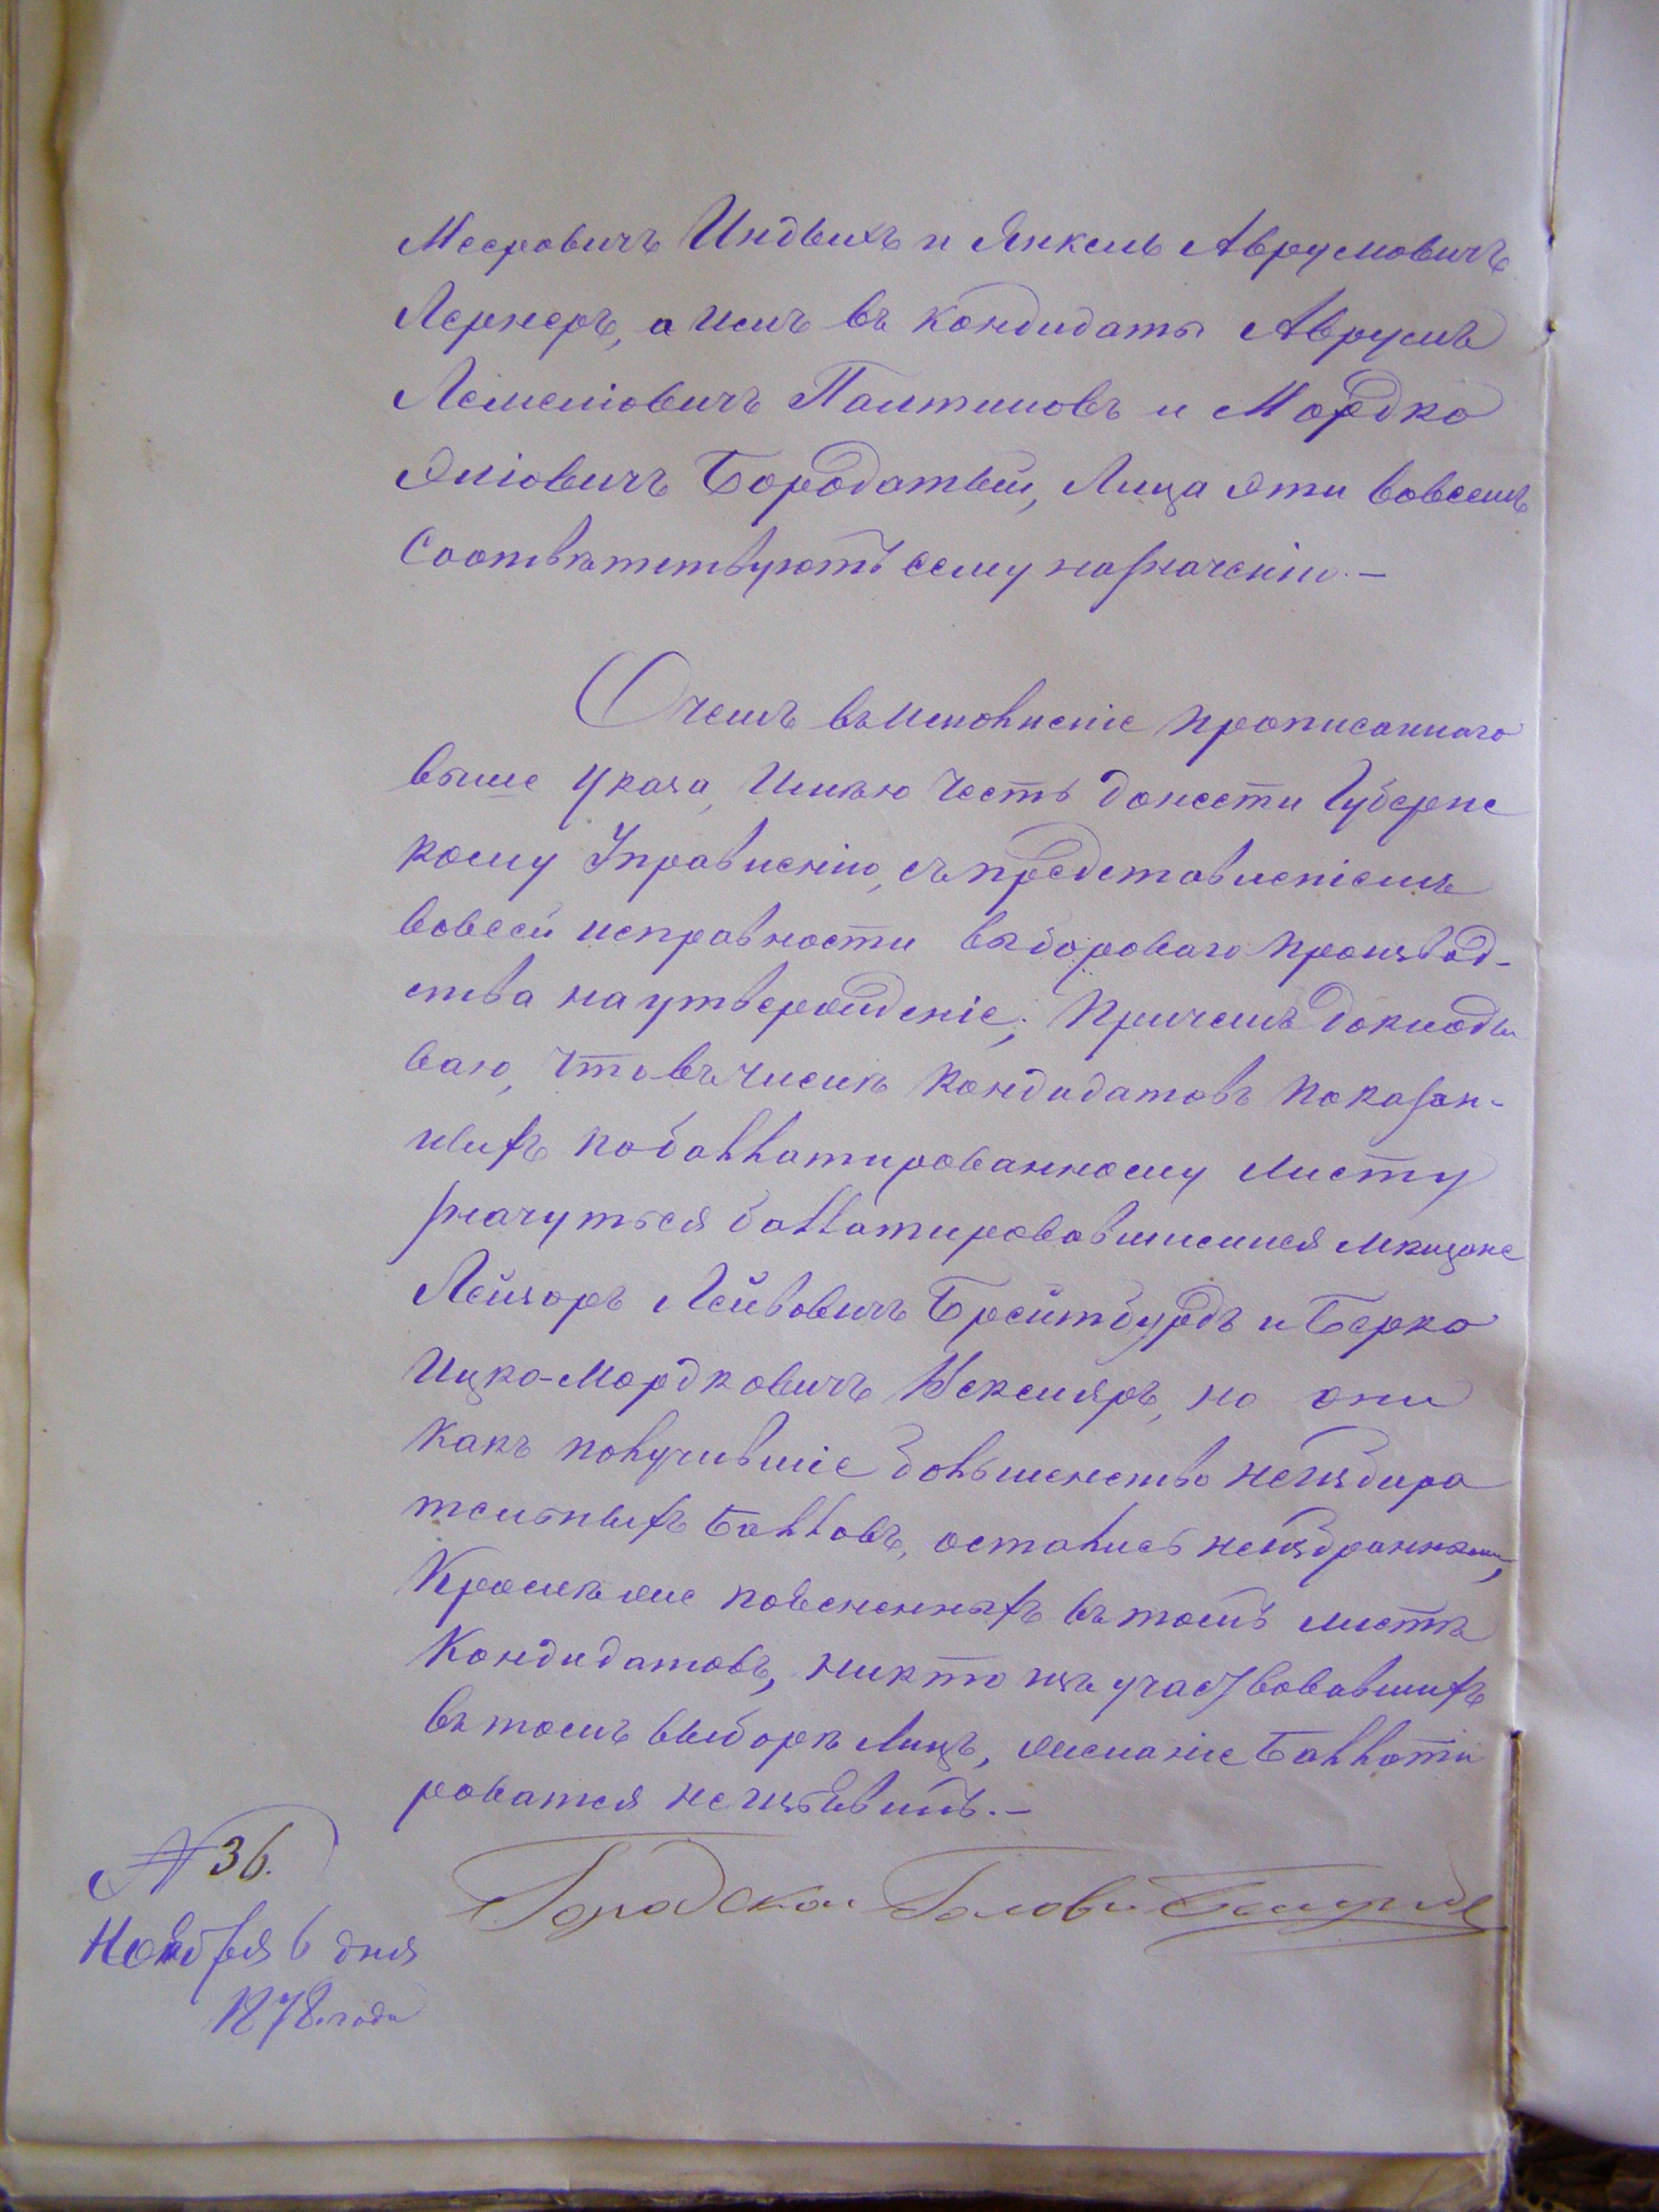 Мееровичъ Индыхъ и Янкель Аврумовичъ
Лернеръ, а имъ въ кондидаты Аврумъ
Лемеліовичъ Палтиновъ и Мордко
Эліовичъ Бородатый, Лица эти вовсемъ
Соотвѣтствуютъ сему назначенію. —
О чемъ въ исполненіе прописаннаго
выше Указа, Имѣю Честь донести Губернс
кому Управленію, съ представленіемъ
вовсей исправности выбороваго производ-
ства на утвержденіе; Причемъ доклады
ваю, что въ числѣ Кондидатовъ показан-
ныхъ побаллатированному листу
значуться баллатировавшимися мѣщане
Лейзоръ Лейвовичъ Брейтбурдъ и Берко
Ицко-Мордковичъ Векслеръ, но они
Какъ получившіе большенство неизбира
тельныхъ балловъ, остались неизбранными,
Кромѣ же поясненныхъ въ томъ листѣ
Кондидатовъ, никто изъ участвовавшихъ
въ томъ выборѣ Лицъ, желаніе баллоти
роватся не изъявилъ. —
№ 36.
Ноября 6 дня
1878 года
Городской Голова